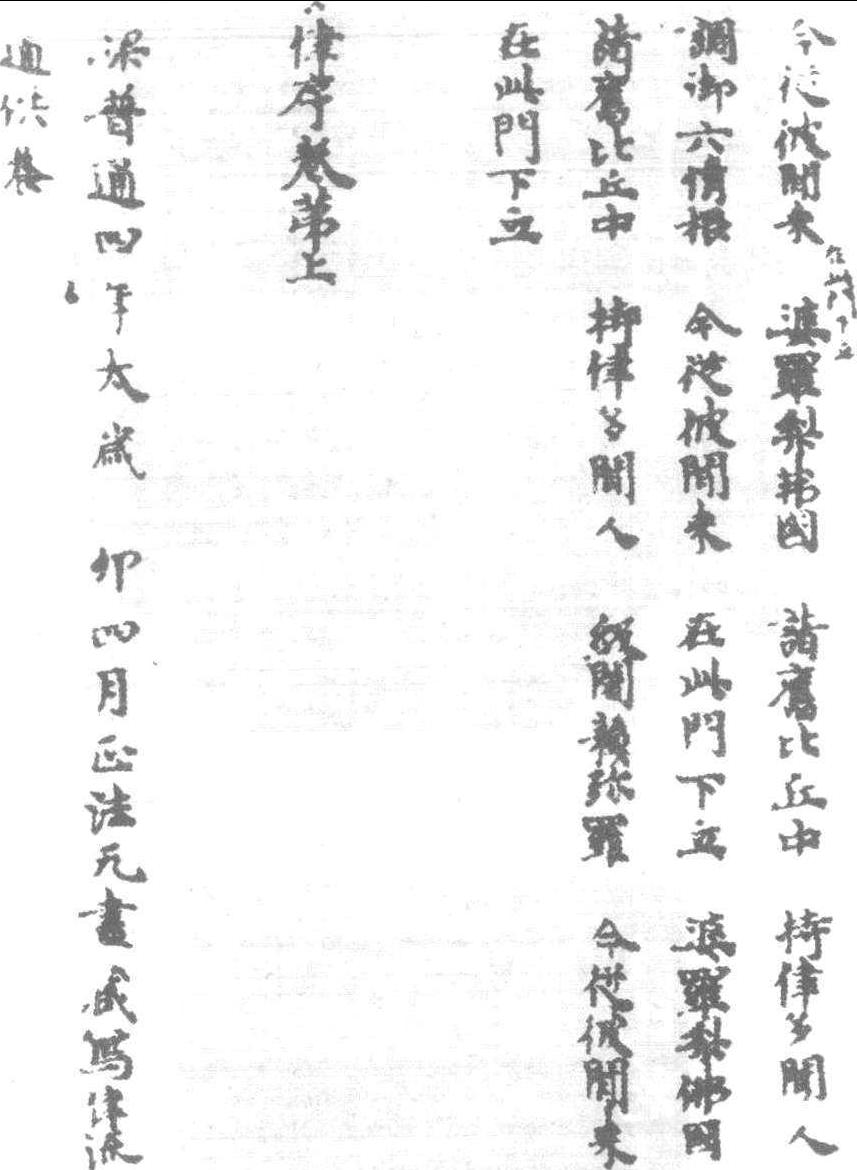 今從彼聞来 婆羅梨弗國 諸舊比丘中 持律多聞人
在此門下立
調御六情根 今從彼聞来 在此門下立 婆羅梨佛國
諸舊比丘中 持律多聞人 聞賴弥羅 今從彼聞来
在此門下立
律序卷第上
梁普通四年太歲 卯四月正法无盡 成寫律流
通供養